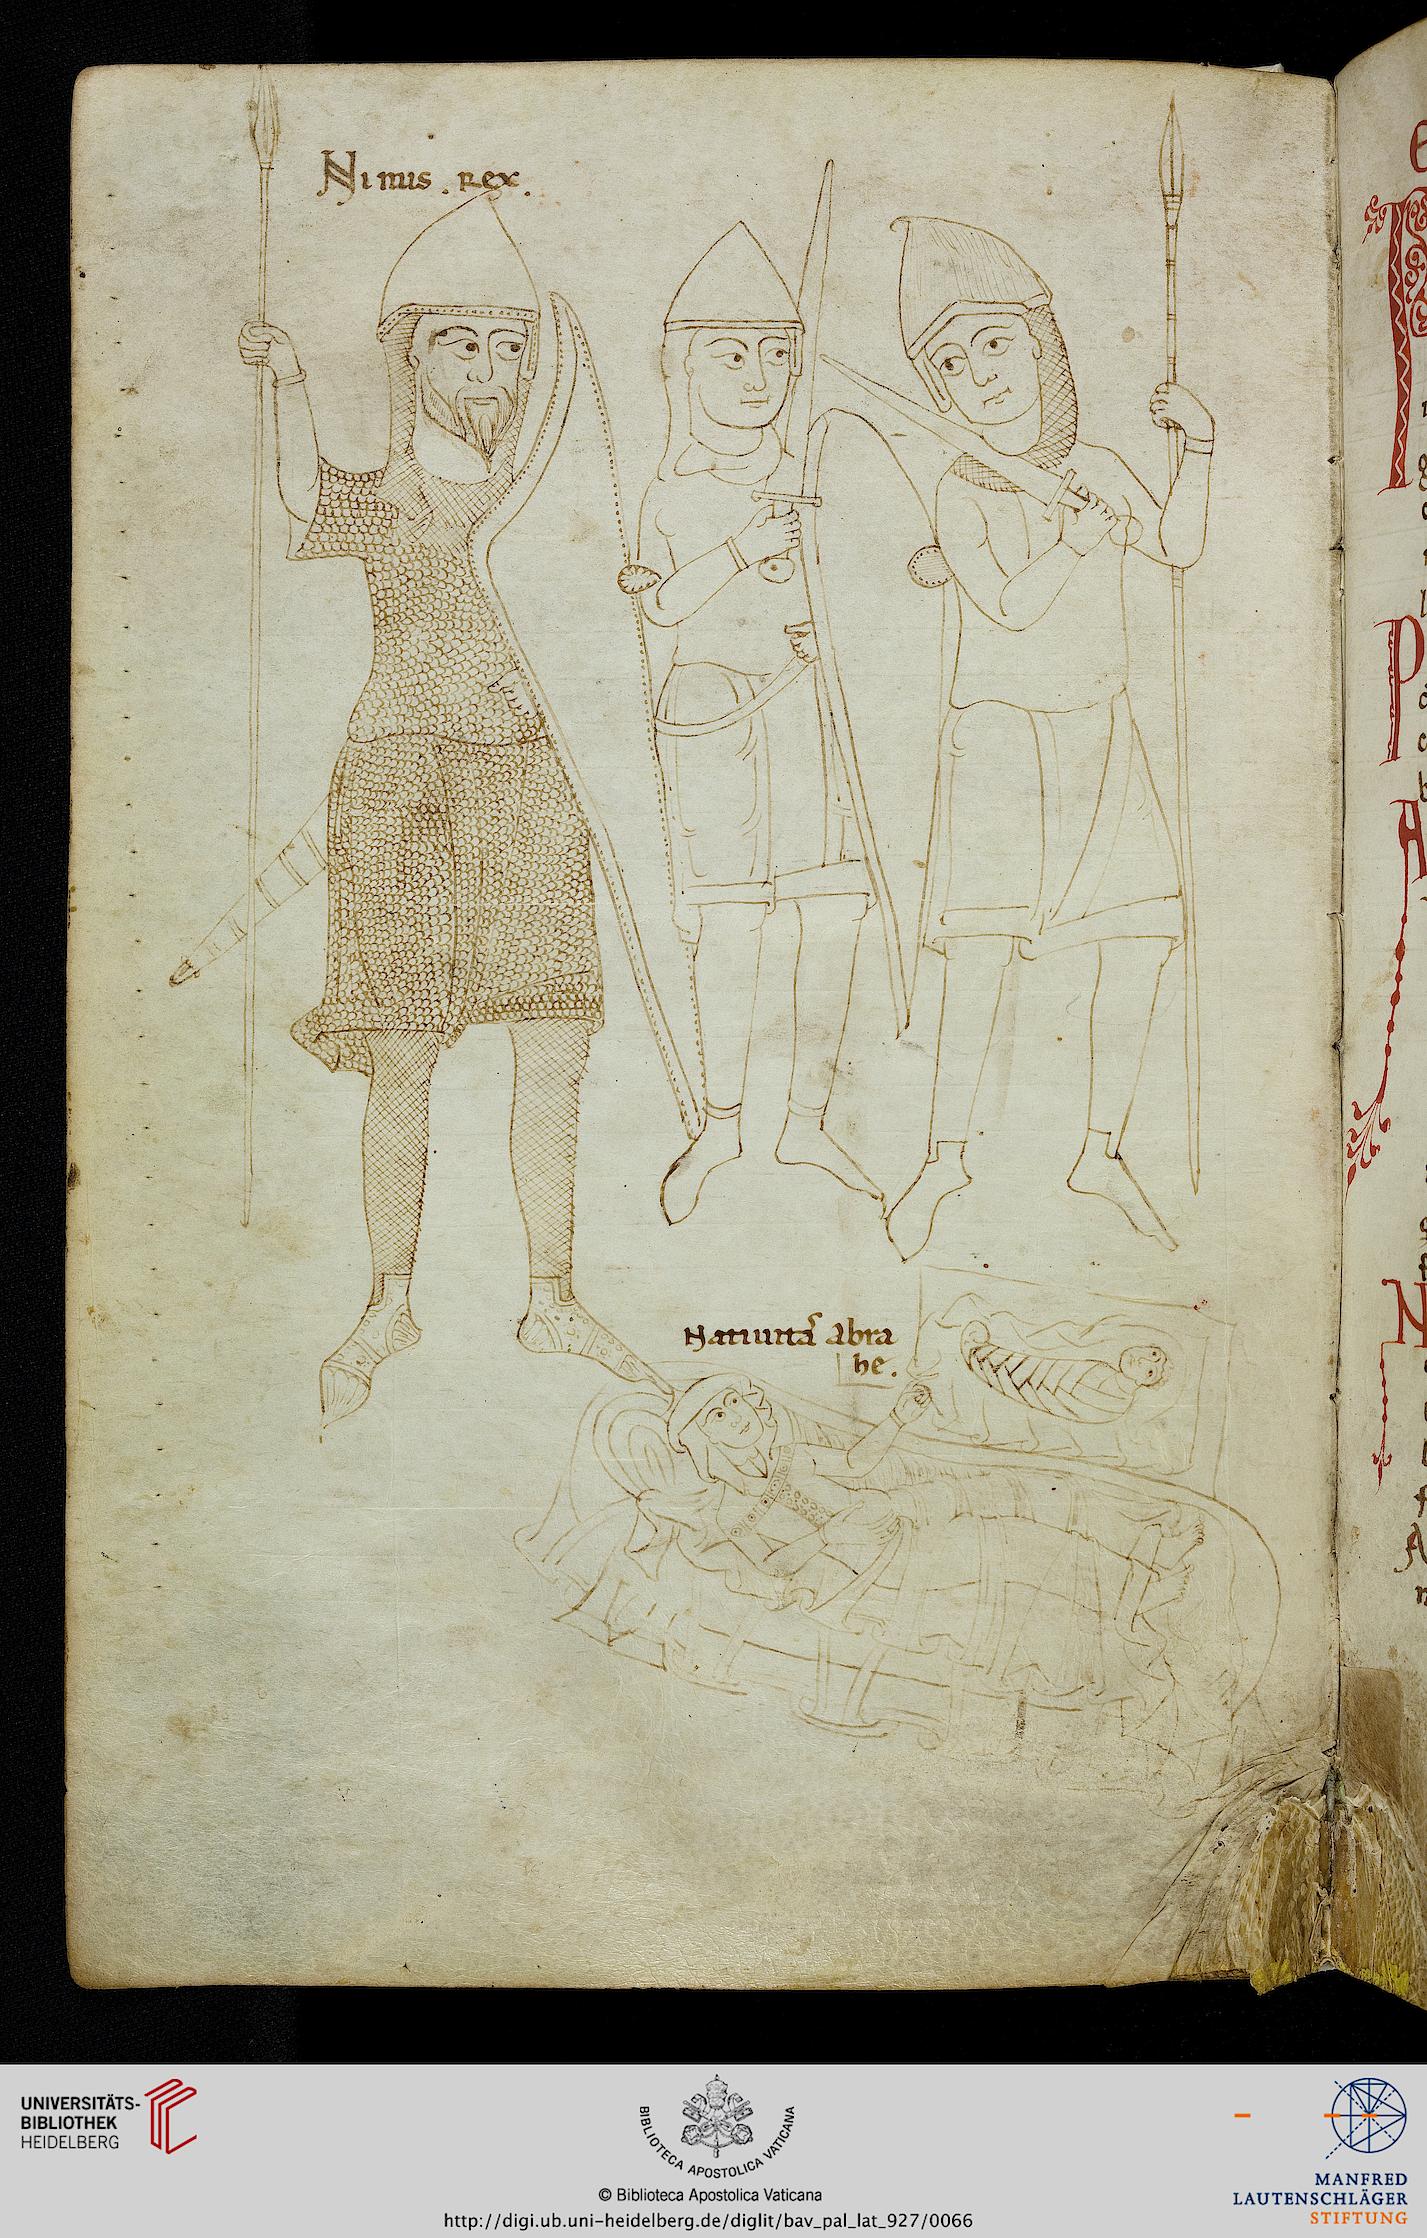 Ninus . rex .
Natiuitas abra
he .
UNIVERSITÄTS-
BIBLIOTHEK
HEIDELBERG
BIBLIOTECA APOSTOLICA VATICANA
© Biblioteca Apostolica Vaticana
http://digi.ub.uni-heidelberg.de/diglit/bav_pal_lat_927/0066
MANFRED
LAUTENSCHLÄGER
STIFTUNG